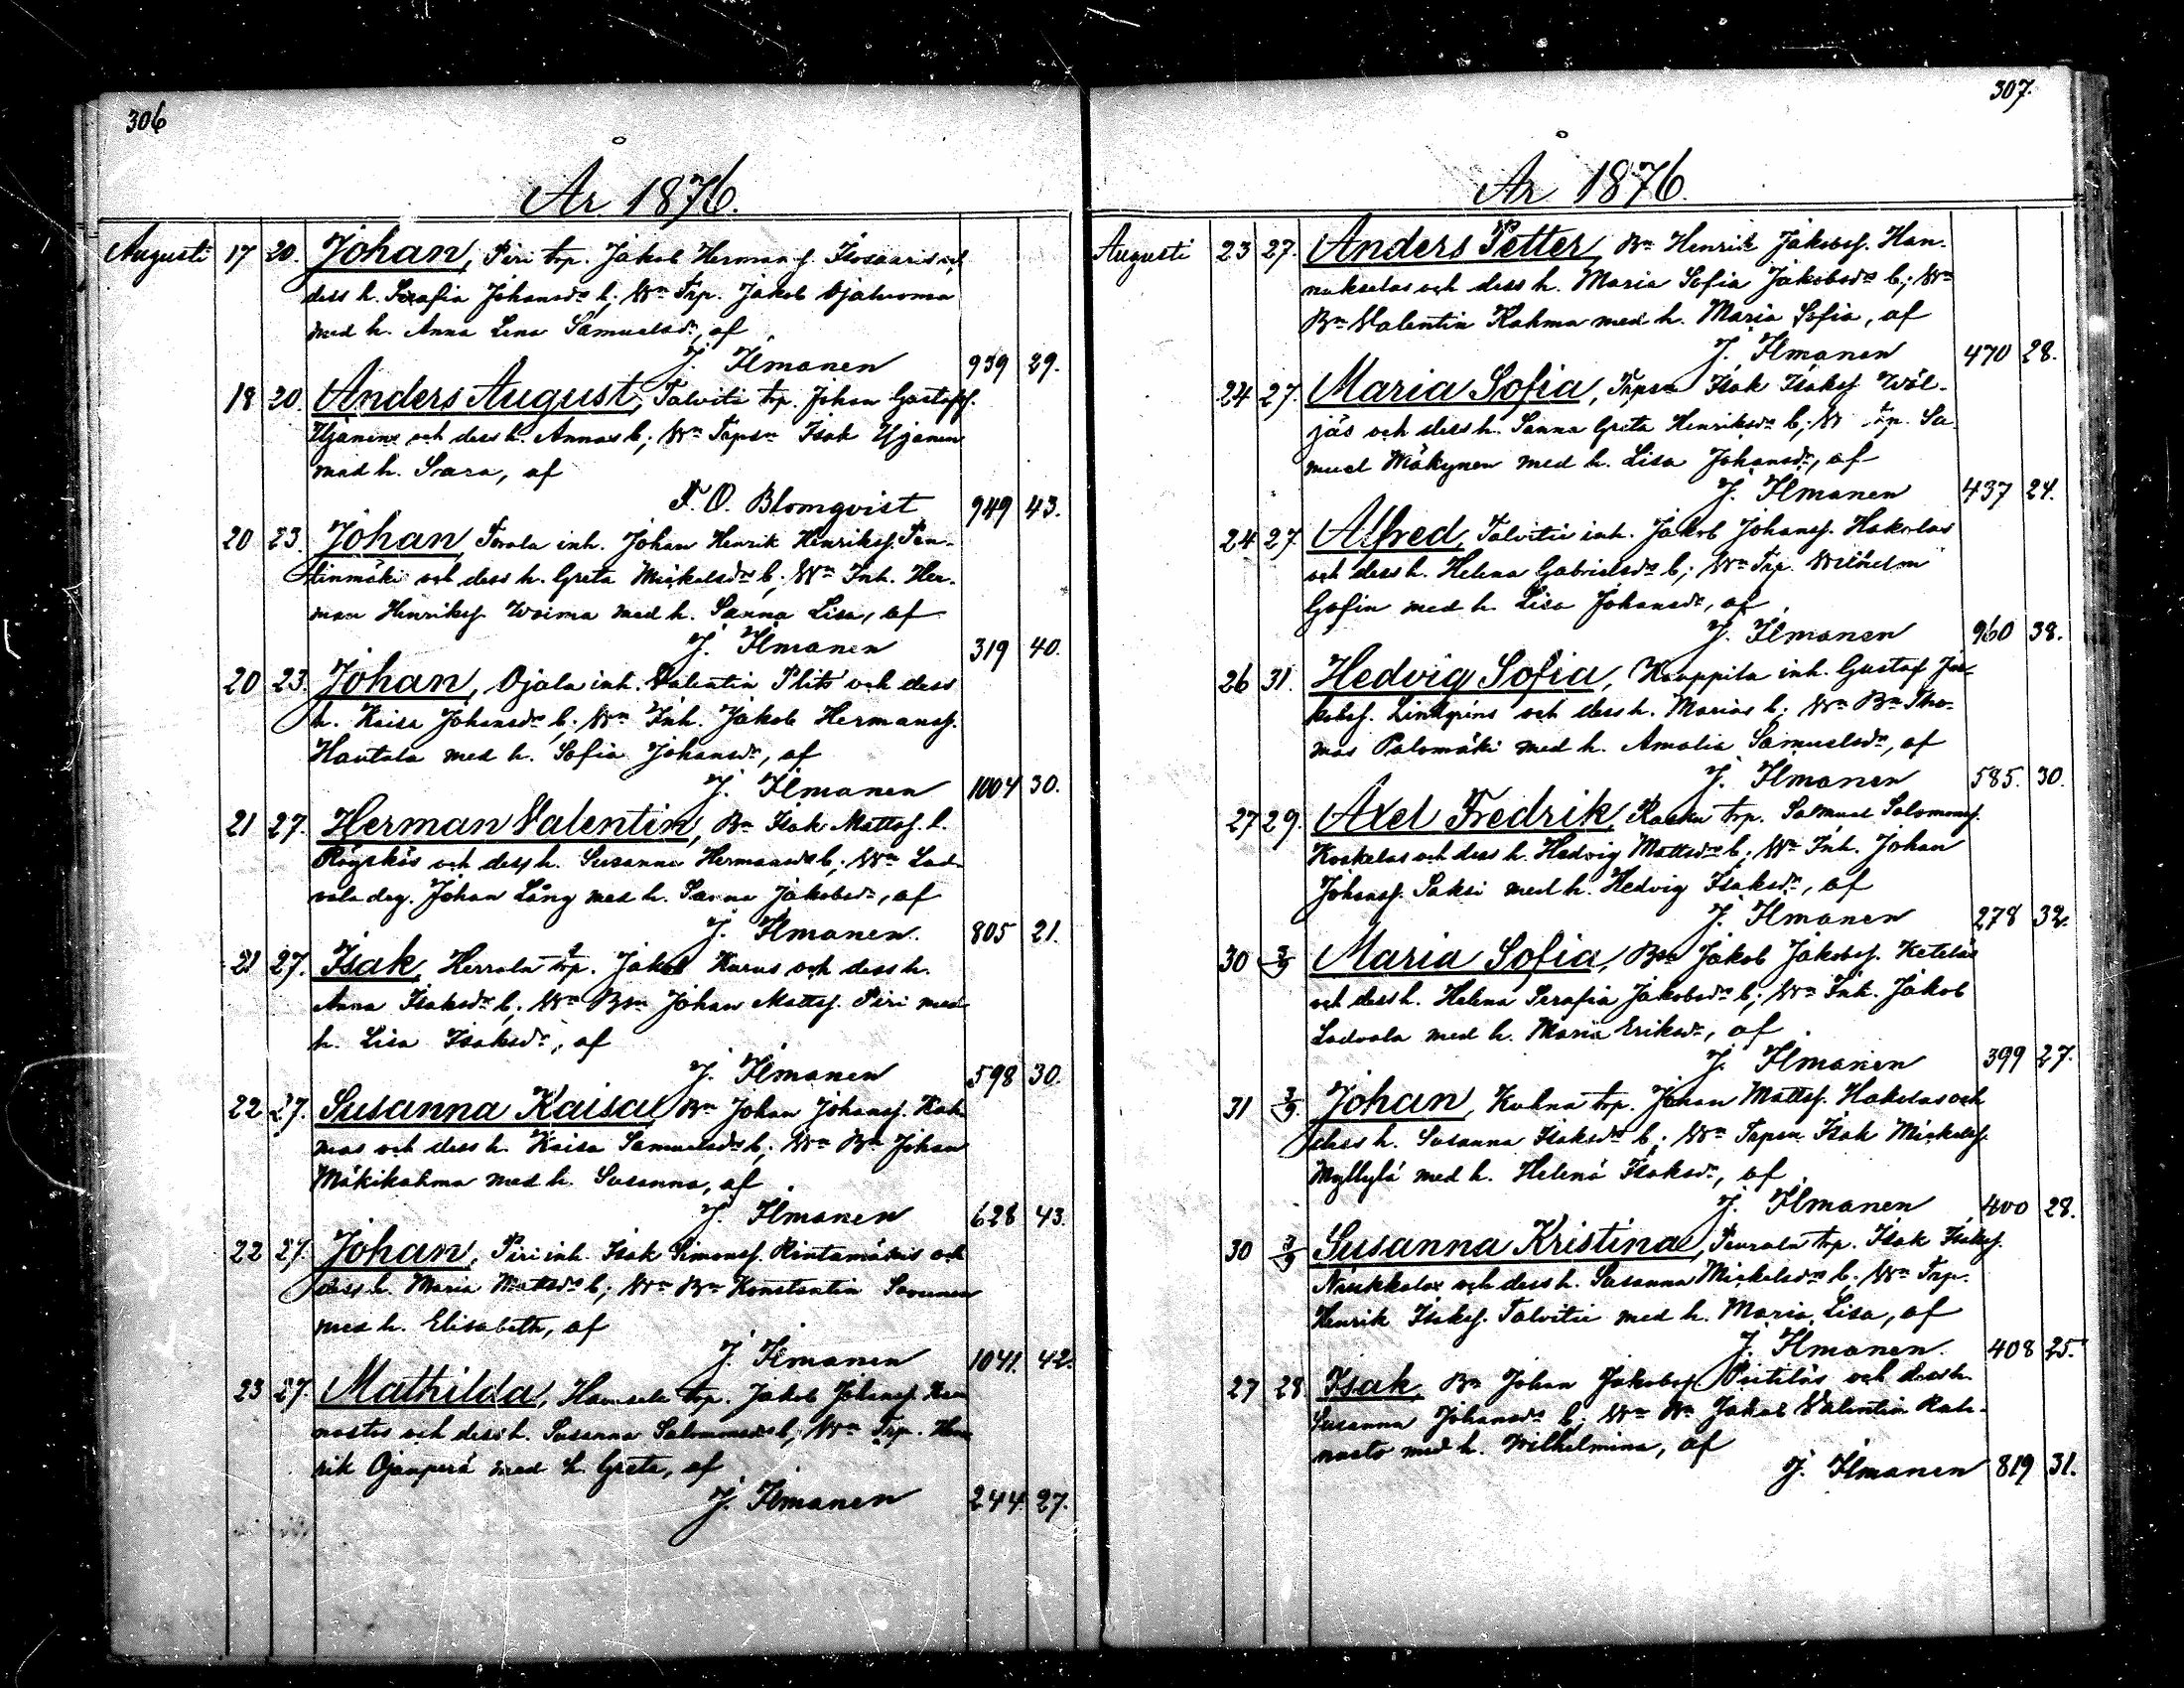 306
År 1876.
Augusti 17 20. Johan, Piri trp. Jakob Hermansf. Isosaaris och
dess h. Serafia Johansdrs b; Wn Trp. Jakob Ojalvoma
med h. Anna Lena Samuelsdr, af
J. Ilmanen 939 29.
18 20. Anders August, Talvitie trp. Johan Gustafsf.
Ujanens och dess h. Annas b; Wn Trpsn Isak Ujanen
med h. Sara, af
F. O. Blomqvist 949 43.
20 23. Johan, inh. Johan Henrik Henriksf. Pen-
tinmäki och dess h. Greta Mickelsdrs b; Wn Inh. Her-
man Henriksf. Woima med h. Sanna Lisa, af
J. Ilmanen 319 40.
20 23. Johan, Ojala inh. Valentin Plits och dess
h. Kaisa Johansdrs b; Wn Inh. Jakob Hermansf.
Hautala med h. Sofia Johansdr, af
J. Ilmanen 1004 30.
21 27. Herman Valentin, Bn Isak Mattsf. l.
Röyskös och dess h. Susanna Hermansdrs b; Wn Lad-
vala drg. Johan Lång med h. Sanna Jakobsdr, af
J. Ilmanen. 805 21.
21 27. Isak, Herrala trp. Jakob Karus och dess h.
Anna Isaksdrs b; Wn Bsn Johan Mattsf. Piri med
h. Lisa Isaksdr, af
J. Ilmanen 598 30.
22 27. Susanna Kaisa, Bn Johan Johansf. Kah-
mas och dess h. Kaisa Samuelsdrs b; Wn Bn Johan
Mäkikahma med h. Susanna, af
J. Ilmanen 628 43.
22 27. Johan, Piri inh. Isak Simonsf. Rintamäkis och
dess h. Maria Mattsdrs b; Wn Bn Konstantin Savunen
med h. Elisabeth, af
J. Ilmanen 1041. 42.
23 27. Mathilda, trp. Jakob Johansf. Rau-
nastos och dess h. Susanna Salomonsdrs b; Wn Trp. Hen-
rik Ojanperä med h. Greta, af
J. Ilmanen 244. 27.
307.
År 1876.
Augusti 23 27. Anders Petter, Bn Henrik Jakobsf. Han-
nukselas och dess h. Maria Sofia Jakobsdrs b; Wn
Bn Valentin Kahma med h. Maria Sofia, af
J. Ilmanen 470 28.
24 27. Maria Sofia, Trpsn Isak Isaksf. Wäl-
jäs och dess h. Sanna Greta Henriksdrs b; W trp. Sa-
muel Mäkynen med h. Lisa Johansdr, af
J. Ilmanen 437 24.
24 27. Alfred, Talvitie inh. Jakob Johansf. Hakolas
och dess h. Helena Gabrielsdrs b; Wn Trp. Wilhelm
Gofin med h. Lisa Johansdr, af
J. Ilmanen 960 38.
26 31. Hedvig Sofia, Kauppila inh. Gustaf Ja-
kobsf. Lindgrens och dess h. Marias b; Wn Bn Tho-
mas Palomäki med h. Amalia Samuelsdr, af
J. Ilmanen 585. 30.
27 29. Axel Fredrik, Rasku trp. Salomon Salomonsf.
Koskelas och dess h. Hedvig Mattsdrs b; Wn Inh. Johan
Johansf. Saksi med h. Hedvig Isaksdr, af
J. Ilmanen 278 32.
30 3/9 Maria Sofia, Bsn Jakob Jakobsf. Keteläs
och dess h. Helena Serafia Jakobsdrs b; Wn Inh. Jakob
Ladvala med h. Maria Eriksdr, af
J. Ilmanen 399 27.
31 3/9. Johan, Kuhna trp. Johan Mattsf. Hakolas och
dess h. Susanna Isaksdrs b; Wn Trpsn Isak Mickelsf.
Myllylä med h. Helena Isaksdr, af
J. Ilmanen 400 28.
30 3/9 Susanna Kristina, Peurala trp. Isak Isaksf.
Niukkalas och dess h. Susanna Mickelsdrs b; Wn Trp.
Henrik Isaksf. Talvitie med h. Maria Lisa, af
J. Ilmanen. 408 25.
27 28. Isak, Bn Johan Jakobsf. Piitiläs och dess h.
Susanna Johansdrs b; Wn Bn Jakob Valentin Rau-
nasto med h. Wilhelmina, af
J. Ilmanen 819 31.